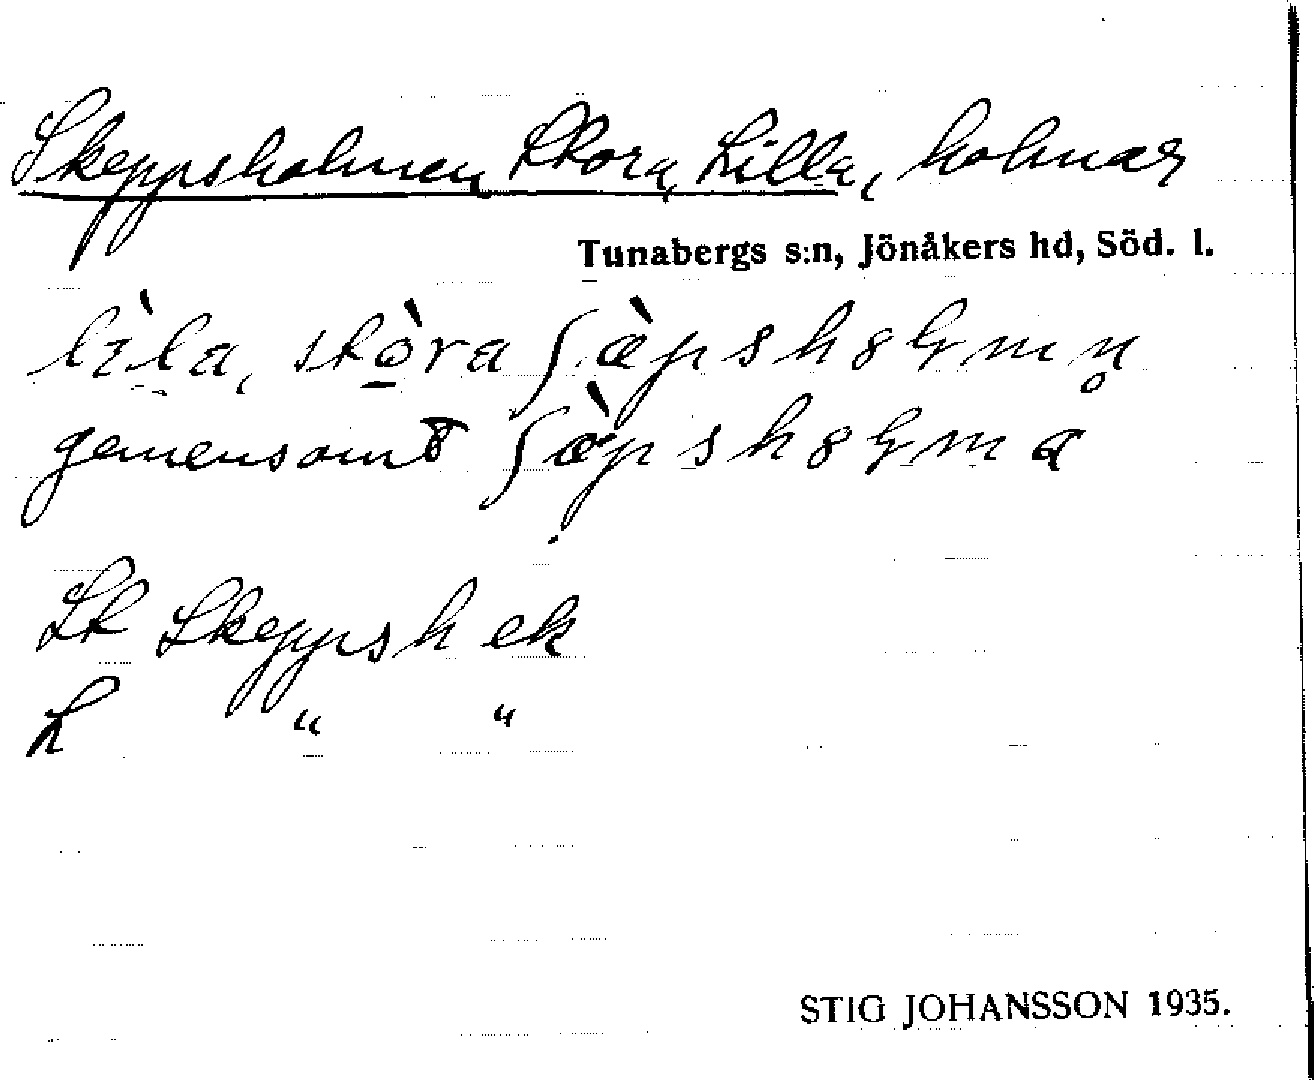 Skeppsholmen, Stora, Lilla, holmar
Tunabergs s:n, Jönåkers hd, Söd. l.
lìla, stòra ʃæ̀psholmn̥
gemensamt ʃæ̀psholma
St Skeppsh ek
L " "
STIG JOHANSSON 1935.